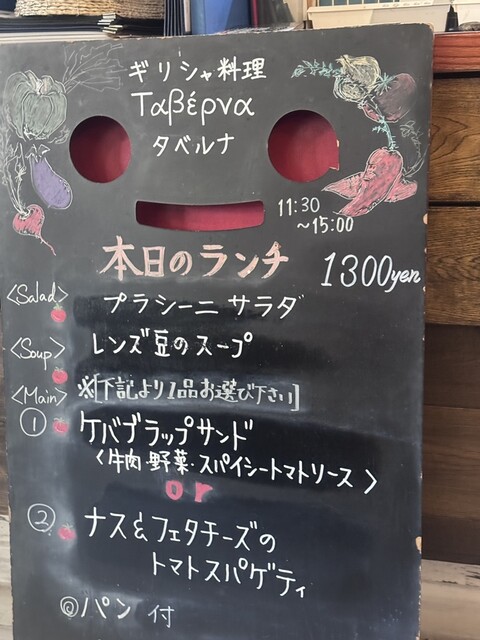 ギリシャ料理
Ταβέρνα
タベルナ
11:30
～15:00
本日のランチ
1300yen
<Salad> プラシーニ サラダ
<Soup> レンズ豆のスープ
<Main> ※[下記より1品お選び下さい]
① ケバブラップサンド
<牛肉・野菜・スパイシートマトソース>
or
② ナス&フェタチーズの
トマトスパゲティ
◎パン 付